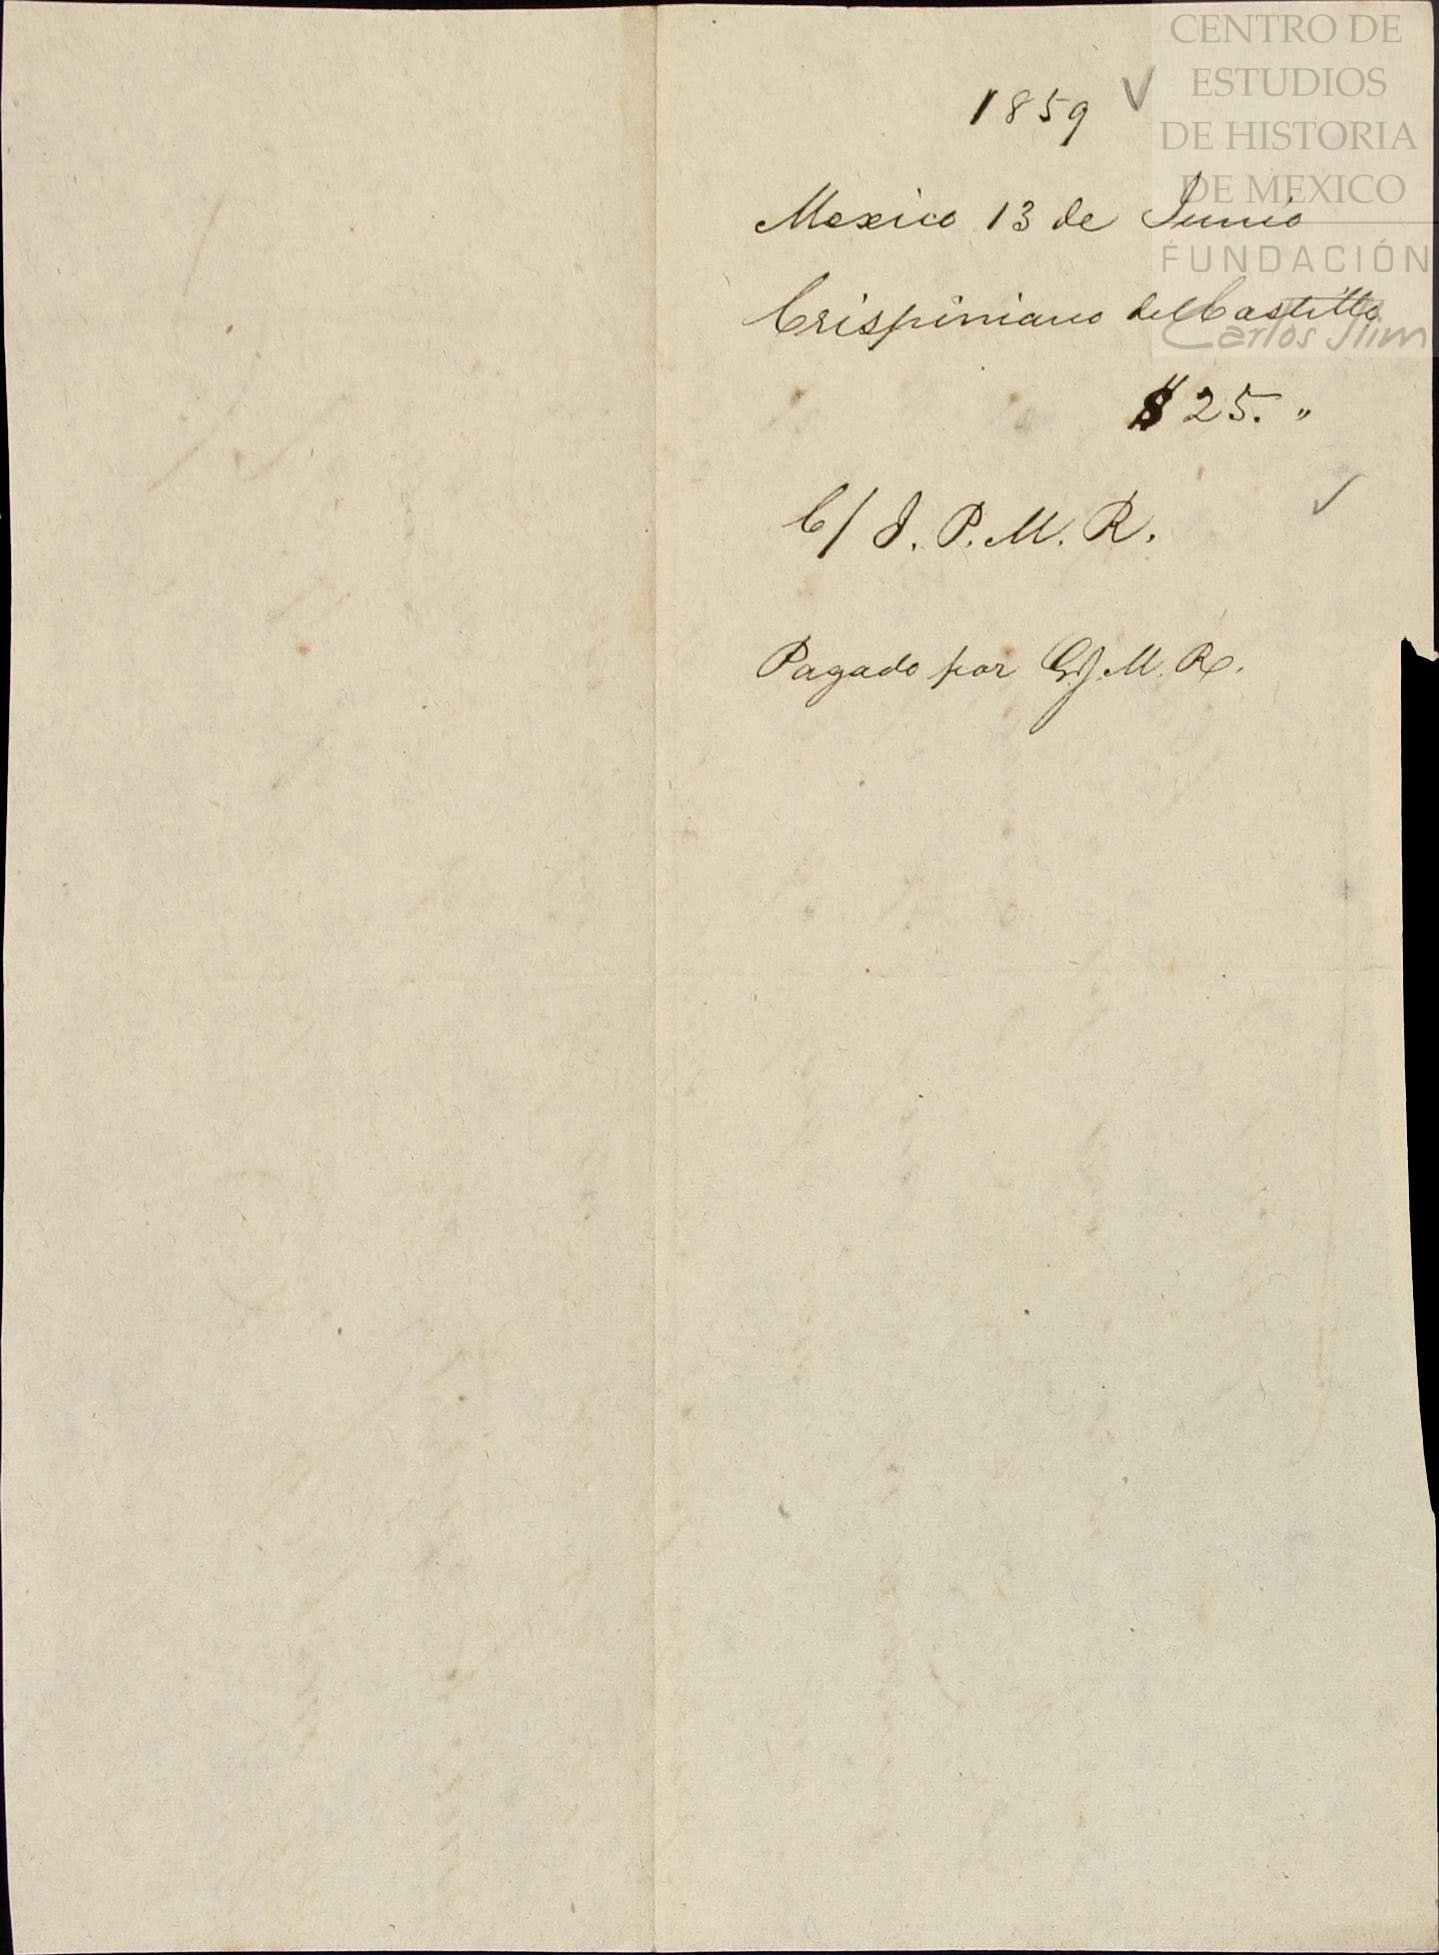 1859
Mexico 13 de Junio
Crispiniano del Castillo
$ 25. "
C/ J. P. M. R.
Pagado por G. J. M. R.
CENTRO DE
ESTUDIOS
DE HISTORIA
DE MEXICO
FUNDACIÓN
Carlos Slim